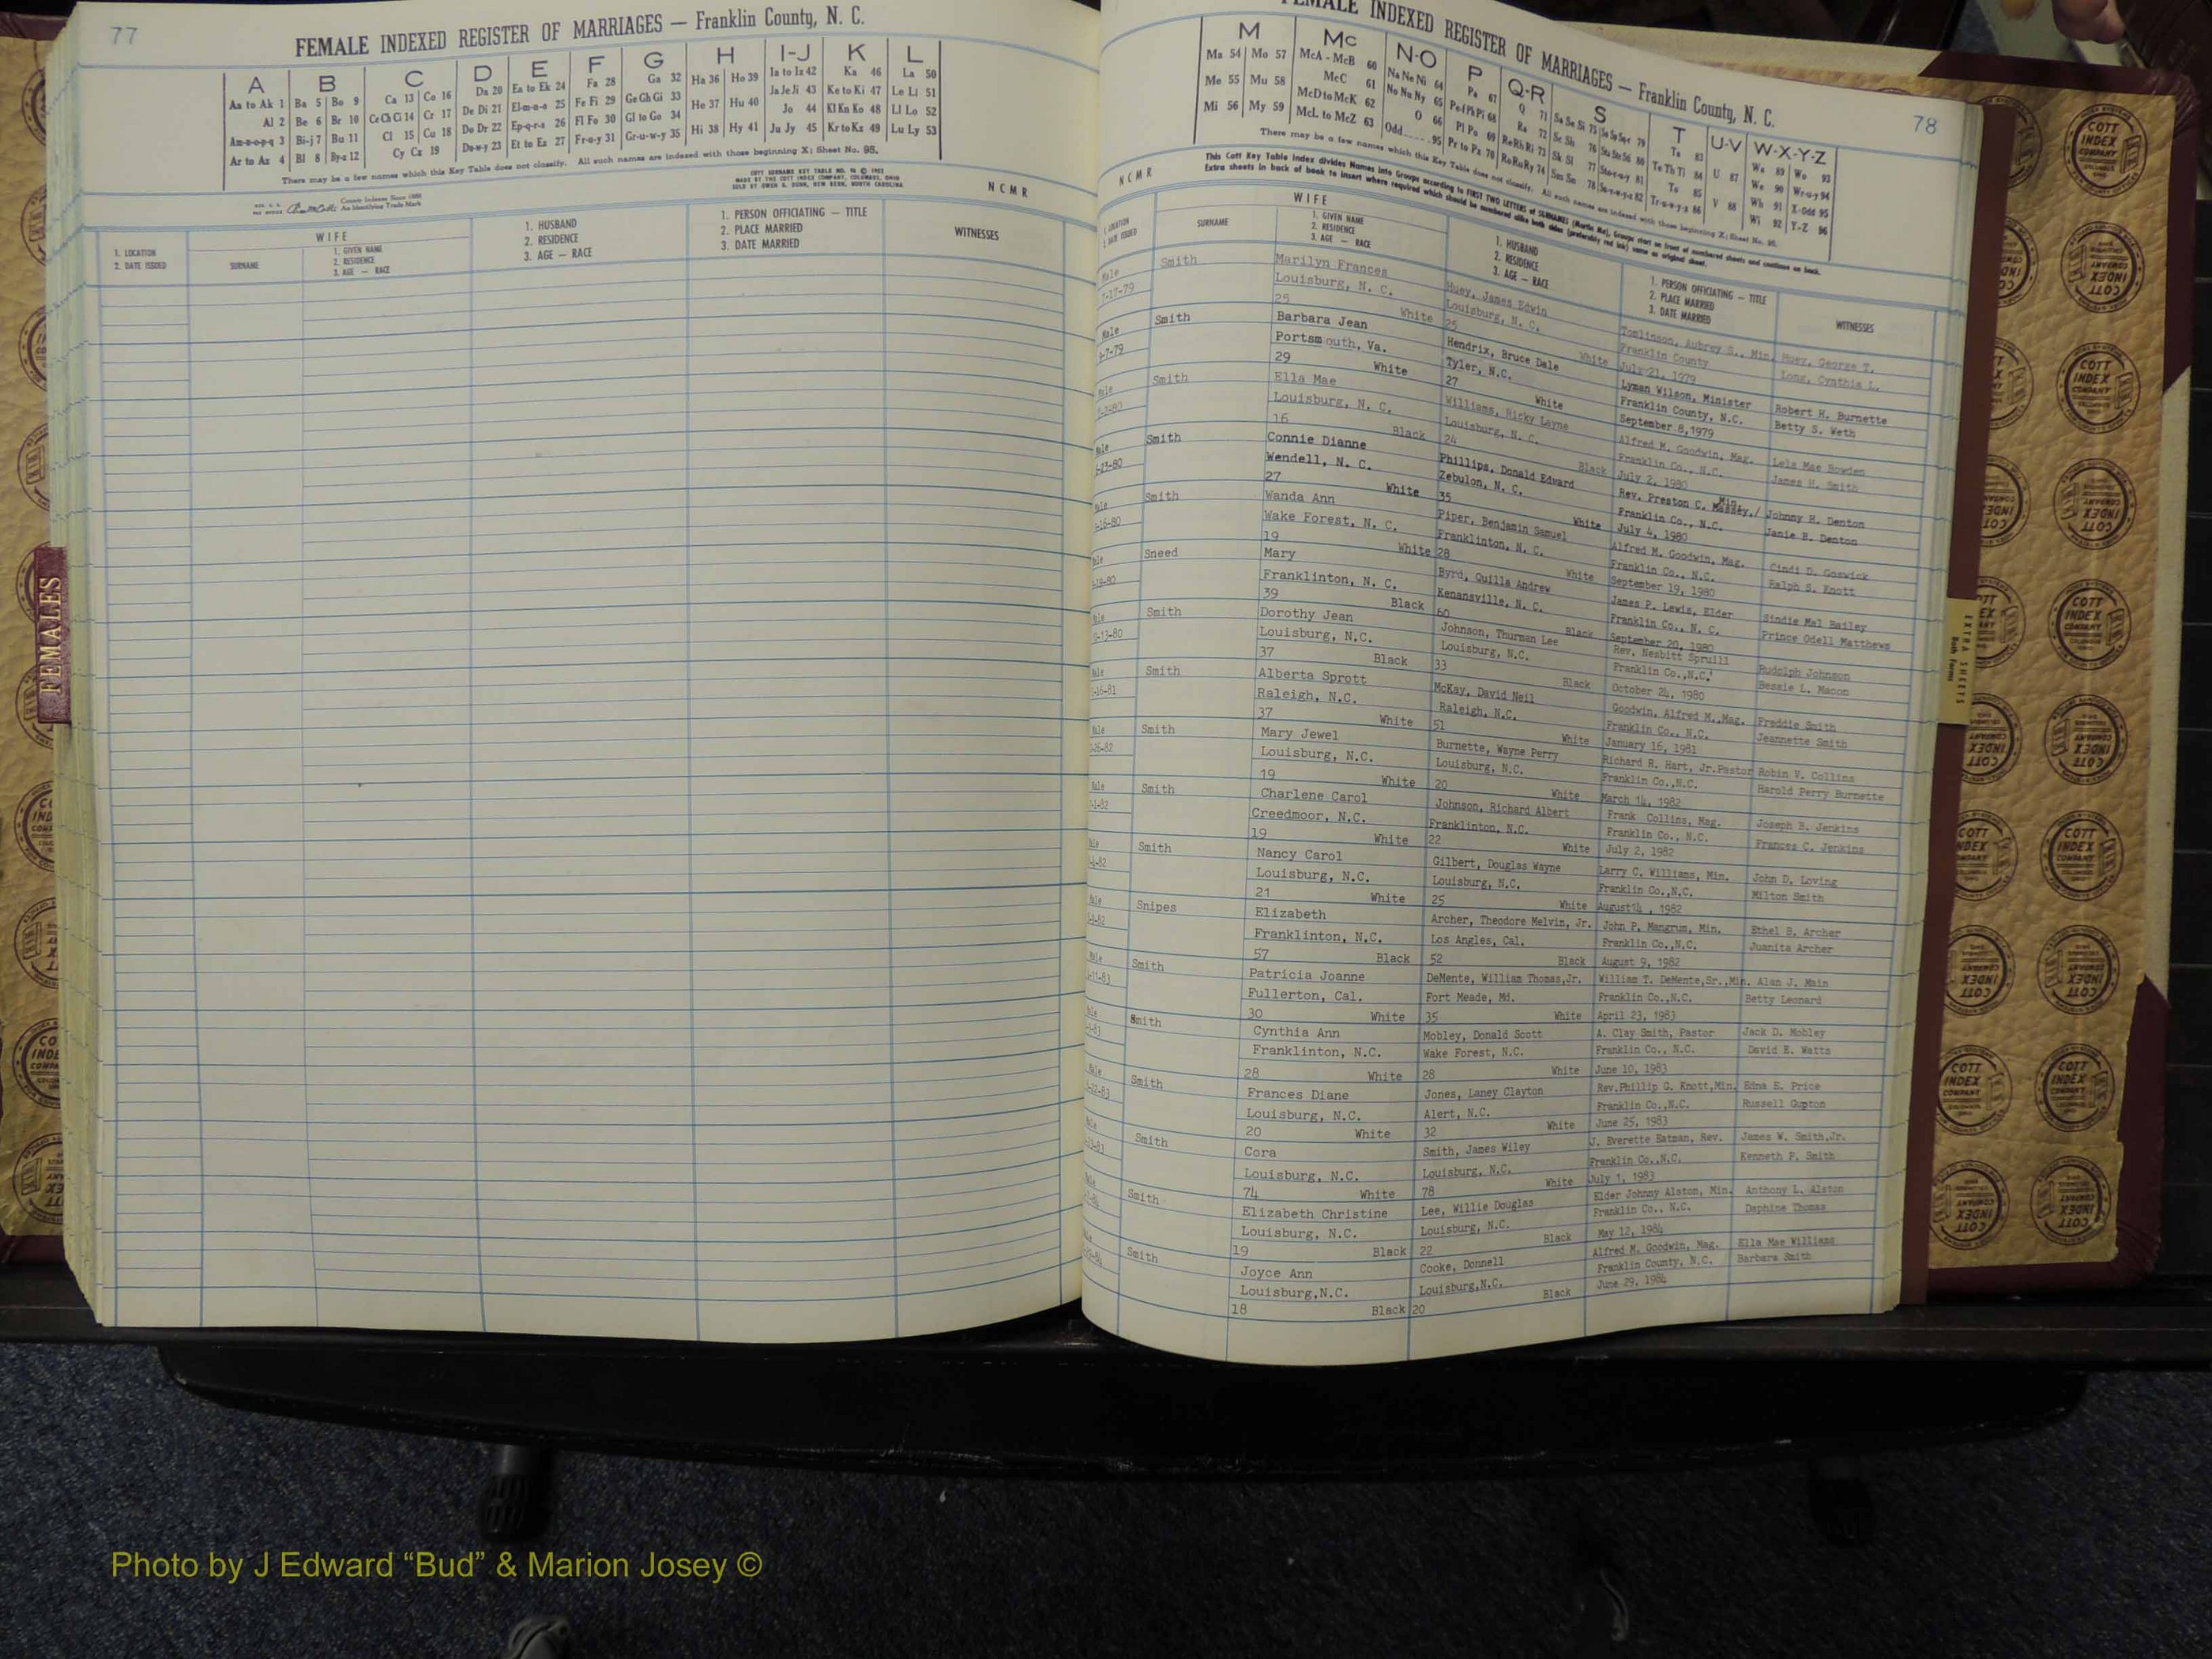 77
FEMALE INDEXED REGISTER OF MARRIAGES — Franklin County, N. C.
A B C D E F G H I-J K L
Aa to Ak 1 Ba 5 Bo 9 Ca 13 Co 16 Da 20 Ea to Ek 24 Fa 28 Ga 32 Ha 36 Ho 39 Ia to Iz 42 Ka 46 La 50
Al 2 Be 6 Br 10 Ce Ch Ci 14 Cr 17 De Di 21 El-m-n-o 25 Fe Fi 29 Ge Gh Gi 33 He 37 Hu 40 Ja Je Ji 43 Ke to Ki 47 Le Li 51
Am-n-o-p-q 3 Bi-j 7 Bu 11 Cl 15 Cu 18 Do Dr 22 Ep-q-r-s 26 Fl Fo 30 Gl to Go 34 Hi 38 Hy 41 Jo 44 Kl Kn Ko 48 Ll Lo 52
Ar to Az 4 Bl 8 By-z 12 Cy Cz 19 Du-w-y 23 Et to Ez 27 Fr-u-y 31 Gr-u-w-y 35 Ju Jy 45 Kr to Kz 49 Lu Ly 53
There may be a few names which this Key Table does not classify. All such names are indexed with those beginning X; Sheet No. 95.
N C M R
1. LOCATION
2. DATE ISSUED
WIFE
SURNAME
1. GIVEN NAME
2. RESIDENCE
3. AGE — RACE
1. HUSBAND
2. RESIDENCE
3. AGE — RACE
1. PERSON OFFICIATING — TITLE
2. PLACE MARRIED
3. DATE MARRIED
WITNESSES
FEMALES
FEMALE INDEXED REGISTER OF MARRIAGES — Franklin County, N. C.
78
M Mc N-O P Q-R S T U-V W-X-Y-Z
Ma 54 Mo 57 McA - McB 60 Na Ne Ni 64 Pa 67 Q 71
Me 55 Mu 58 McC 61 No Nu Ny 65 Pe-f Ph Pi 68 Ra 72
Mi 56 My 59 McD to McK 62 O 66 Pl Po 69 Re Rh Ri 73
McL to McZ 63 Odd 95 Pr to Pz 70 Ro Ru Ry 74
There may be a few names which this Key Table does not classify. All such names are indexed with those beginning X; Sheet No. 95.
This Cott Key Table Index divides Names into Groups according to FIRST TWO LETTERS of SURNAMES (Martin Ma). Groups start on front of numbered sheets and continue on back.
Extra sheets in back of book to insert where required which should be numbered alike both sides (preferably red ink) same as original sheet.
N C M R
WIFE
SURNAME
1. GIVEN NAME
2. RESIDENCE
3. AGE — RACE
1. HUSBAND
2. RESIDENCE
3. AGE — RACE
1. PERSON OFFICIATING — TITLE
2. PLACE MARRIED
3. DATE MARRIED
WITNESSES
Male Smith Marilyn Frances Huey, James Edwin Tomlinson, Aubrey S., Min. Huey, George T.
7-17-79 Louisburg, N. C. Louisburg, N. C. Franklin County Long, Cynthia L.
25 White 25 White July 21, 1979
Male Smith Barbara Jean Hendrix, Bruce Dale Lyman Wilson, Minister Robert H. Burnette
Portsmouth, Va. Tyler, N.C. Franklin County, N.C. Betty S. Weth
29 White 27 White September 8, 1979
Smith Ella Mae Williams, Ricky Layne Alfred M. Goodwin, Mag. Lela Mae Bowden
Louisburg, N. C. Louisburg, N. C. Franklin Co., N.C. James H. Smith
16 Black 24 Black July 2, 1980
Smith Connie Dianne Phillips, Donald Edward Rev. Preston C. Massey, Min. Johnny H. Denton
Wendell, N. C. Zebulon, N. C. Franklin Co., N.C. Janie B. Denton
27 White 35 White July 4, 1980
Smith Wanda Ann Piper, Benjamin Samuel Alfred M. Goodwin, Mag. Cindi D. Goswick
Wake Forest, N. C. Franklinton, N. C. Franklin Co., N.C. Ralph S. Knott
19 White 28 White September 19, 1980
Sneed Mary Byrd, Quilla Andrew James P. Lewis, Elder Sindie Mal Bailey
Franklinton, N. C. Kenansville, N. C. Franklin Co., N. C. Prince Odell Matthews
39 Black 60 Black September 20, 1980
Smith Dorothy Jean Johnson, Thurman Lee Rev. Nesbitt Spruill Rudolph Johnson
10-13-80 Louisburg, N.C. Louisburg, N.C. Franklin Co.,N.C. Bessie L. Macon
37 Black 33 Black October 24, 1980
Smith Alberta Sprott McKay, David Neil Goodwin, Alfred M.,Mag. Freddie Smith
Raleigh, N.C. Raleigh, N.C. Franklin Co., N.C. Jeannette Smith
37 White 51 White January 16, 1981
Smith Mary Jewel Burnette, Wayne Perry Richard R. Hart, Jr.Pastor Robin V. Collins
Louisburg, N.C. Louisburg, N.C. Franklin Co.,N.C. Harold Perry Burnette
19 White 20 White March 14, 1982
Male Smith Charlene Carol Johnson, Richard Albert Frank Collins, Mag. Joseph B. Jenkins
Creedmoor, N.C. Franklinton, N.C. Franklin Co., N.C. Frances C. Jenkins
19 White 22 White July 2, 1982
Smith Nancy Carol Gilbert, Douglas Wayne Larry C. Williams, Min. John D. Loving
Louisburg, N.C. Louisburg, N.C. Franklin Co.,N.C. Milton Smith
21 White 25 White August14 , 1982
Snipes Elizabeth Archer, Theodore Melvin, Jr. John P. Mangrum, Min. Ethel B. Archer
Franklinton, N.C. Los Angles, Cal. Franklin Co.,N.C. Juanita Archer
57 Black 52 Black August 9, 1982
Smith Patricia Joanne DeMente, William Thomas,Jr. William T. DeMente,Sr.,Min. Alan J. Main
Fullerton, Cal. Fort Meade, Md. Franklin Co.,N.C. Betty Leonard
30 White 35 White April 23, 1983
Smith Cynthia Ann Mobley, Donald Scott A. Clay Smith, Pastor Jack D. Mobley
Franklinton, N.C. Wake Forest, N.C. Franklin Co., N.C. David E. Watts
28 White 28 White June 10, 1983
Smith Frances Diane Jones, Laney Clayton Rev.Phillip G. Knott,Min. Edna E. Price
Louisburg, N.C. Alert, N.C. Franklin Co.,N.C. Russell Gupton
20 White 32 White June 25, 1983
Smith Cora Smith, James Wiley J. Everette Eatman, Rev. James W. Smith,Jr.
Louisburg, N.C. Louisburg, N.C. Franklin Co.,N.C. Kenneth P. Smith
74 White 78 White July 1, 1983
Smith Elizabeth Christine Lee, Willie Douglas Elder Johnny Alston, Min. Anthony L. Alston
Louisburg, N.C. Louisburg, N.C. Franklin Co., N.C. Daphine Thomas
19 Black 22 Black May 12, 1984
Smith Joyce Ann Cooke, Donnell Alfred M. Goodwin, Mag. Ella Mae Williams
Louisburg,N.C. Louisburg,N.C. Franklin County, N.C. Barbara Smith
18 Black 20 Black June 29, 1984
EXTRA SHEETS
Both Forms
COTT INDEX COMPANY
Photo by J Edward “Bud” & Marion Josey ©